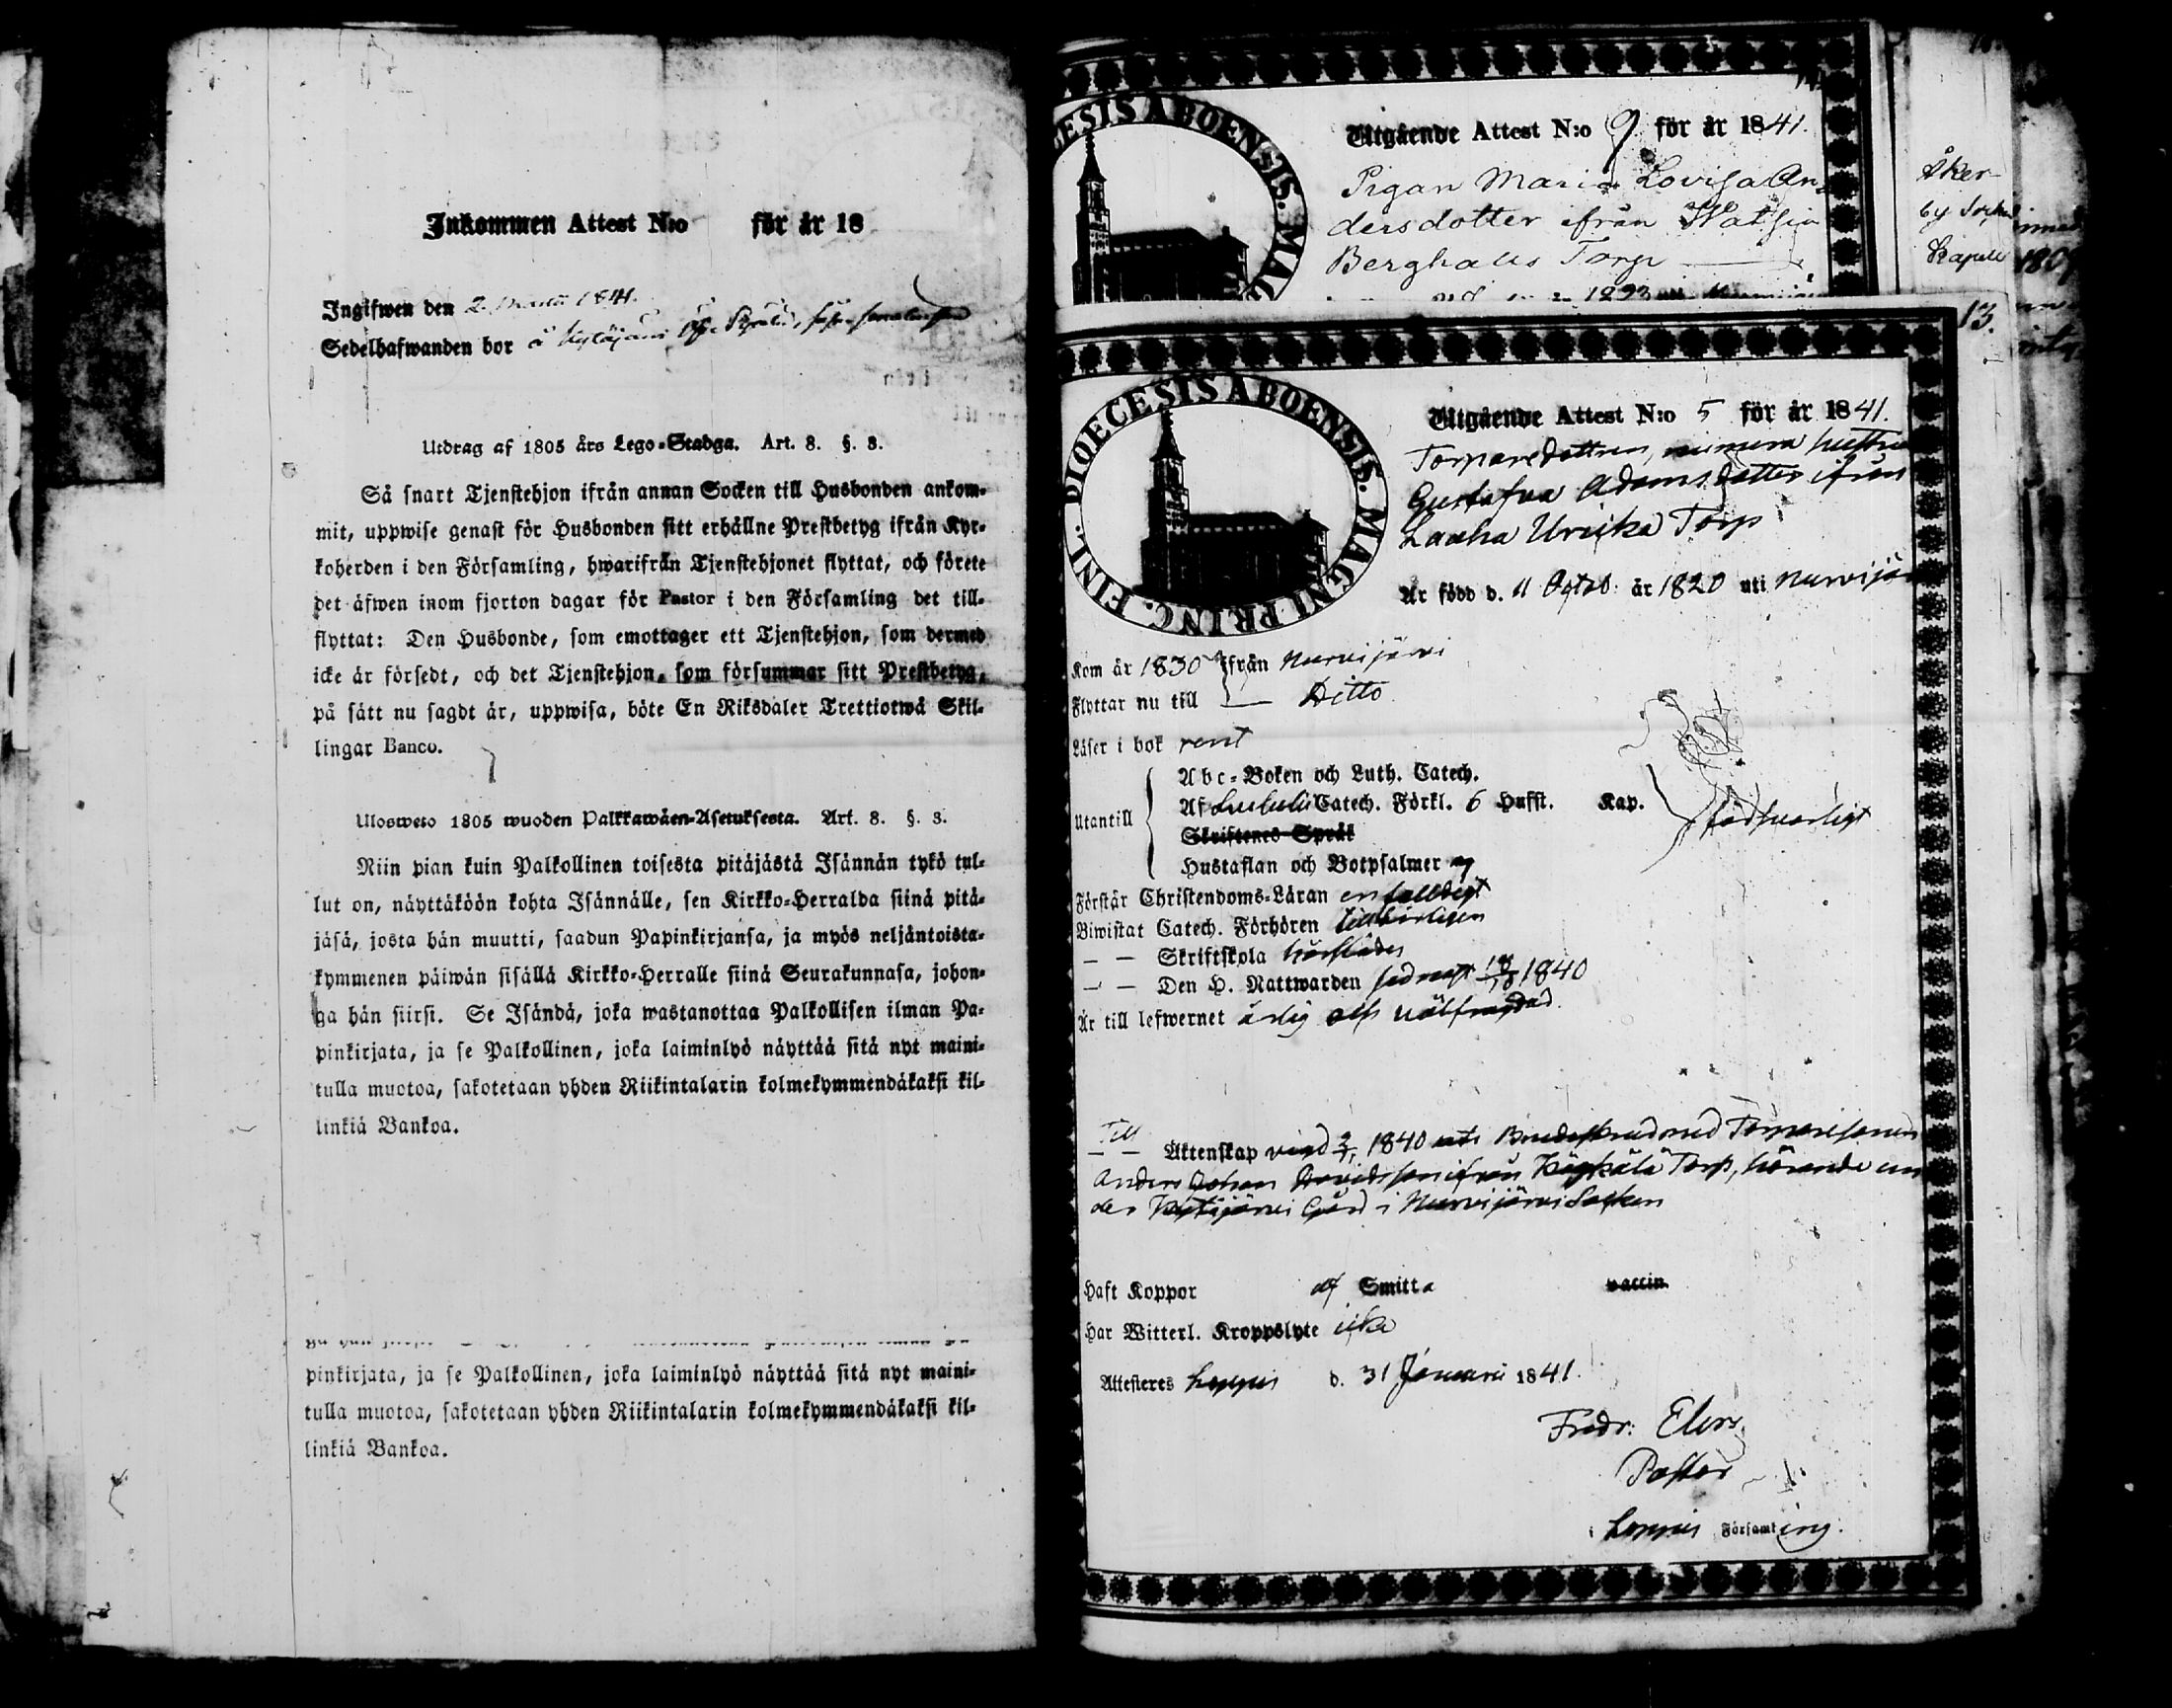 Inkommen Attest N:o för år 18
Ingifwen den 2 Martii 1841.
Sedelhafwanden bor å
Utdrag af 1805 års Lego-Stadga. Art. 8. §. 3.
Så snart Tjenstehjon ifrån annan Socken till Husbonden ankom-
mit, uppwise genast för Husbonden sitt erhållne Prestbetyg ifrån Kyr-
koherden i den Församling, hwarifrån Tjenstehjonet flyttat, och förete
det äfwen inom fjorton dagar för Pastor i den Församling det till-
flyttat: Den Husbonde, som emottager ett Tjenstehjon, som dermed
icke är försedt, och det Tjenstehjon, som försummar sitt Prestbetyg,
på sätt nu sagdt är, uppwisa, böte En Riksdaler Trettiotwå Skil-
lingar Banco.
Ulosweto 1805 wuoden Palkkawäen-Asetuksesta. Art. 8. §. 3.
Niin pian kuin Palkollinen toisesta pitäjästä Isännän tykö tul-
lut on, näyttäköön kohta Isännälle, sen Kirkko-Herralda siinä pitä-
jäsä, josta hän muutti, saadun Papinkirjansa, ja myös neljäntoista-
kymmenen päiwän sisällä Kirkko-Herralle siinä Seurakunnasa, johon-
ga hän siirsi. Se Isändä, joka wastanottaa Palkollisen ilman Pa-
pinkirjata, ja se Palkollinen, joka laiminlyö näyttää sitä nyt maini-
tulla muotoa, sakotetaan yhden Riikintalarin kolmekymmendäkaksi kil-
linkiä Bankoa.
pinkirjata, ja se Palkollinen, joka laiminlyö näyttää sitä nyt maini-
tulla muotoa, sakotetaan yhden Riikintalarin kolmekymmendäkaksi kil-
linkiä Bankoa.
CESIS ABOENSIS. MAG
Utgående Attest N:o 9 för år 1841.
Pigan Maria Lovisa An
dersdotter ifrån
Berghäls Torp
1823
Åker
by
Kapell
1809
13.
DIOECESIS ABOENSIS. MAGNI PRINC. FINL.
Utgående Attest N:o 5 för år 1841.
Torparedottren, numera hustru
Gustafva Adamsdotter ifrån
Laaha Uricka Torp
Är född d. 11 Octob: år 1820 uti Nurvijär
Kom år 1830 Ifrån Nurvijärvi
Flyttar nu till Ditto
Läser i bok rent
Utantill
Abc-Boken och Luth. Catech.
Af Catech. Förkl. 6 Hufst. Kap.
Skriftenes Språk
Hustaflan och Botpsalmer
försvarligt
Förstår Christendoms-Läran enfaldigt
Biwistat Catech. Förhören
— — Skriftskola
— — Den H. Nattwarden sednast 1840
Är till lefwernet ärlig och välfrägdad.
Till
— — Äktenskap vigd 1840 med Torparesonen
Anders Johan Davidsson ifrån Torp, hörande un
der Kytäjärvi Gård i Nurvijärvi Socken
Haft Koppor af Smitta vaccin
Har Witterl. Kroppslyte icke
Attesteres Loppis d. 31 Januarii 1841.
Fredr: Elers
Pastor
i Loppis Församling.